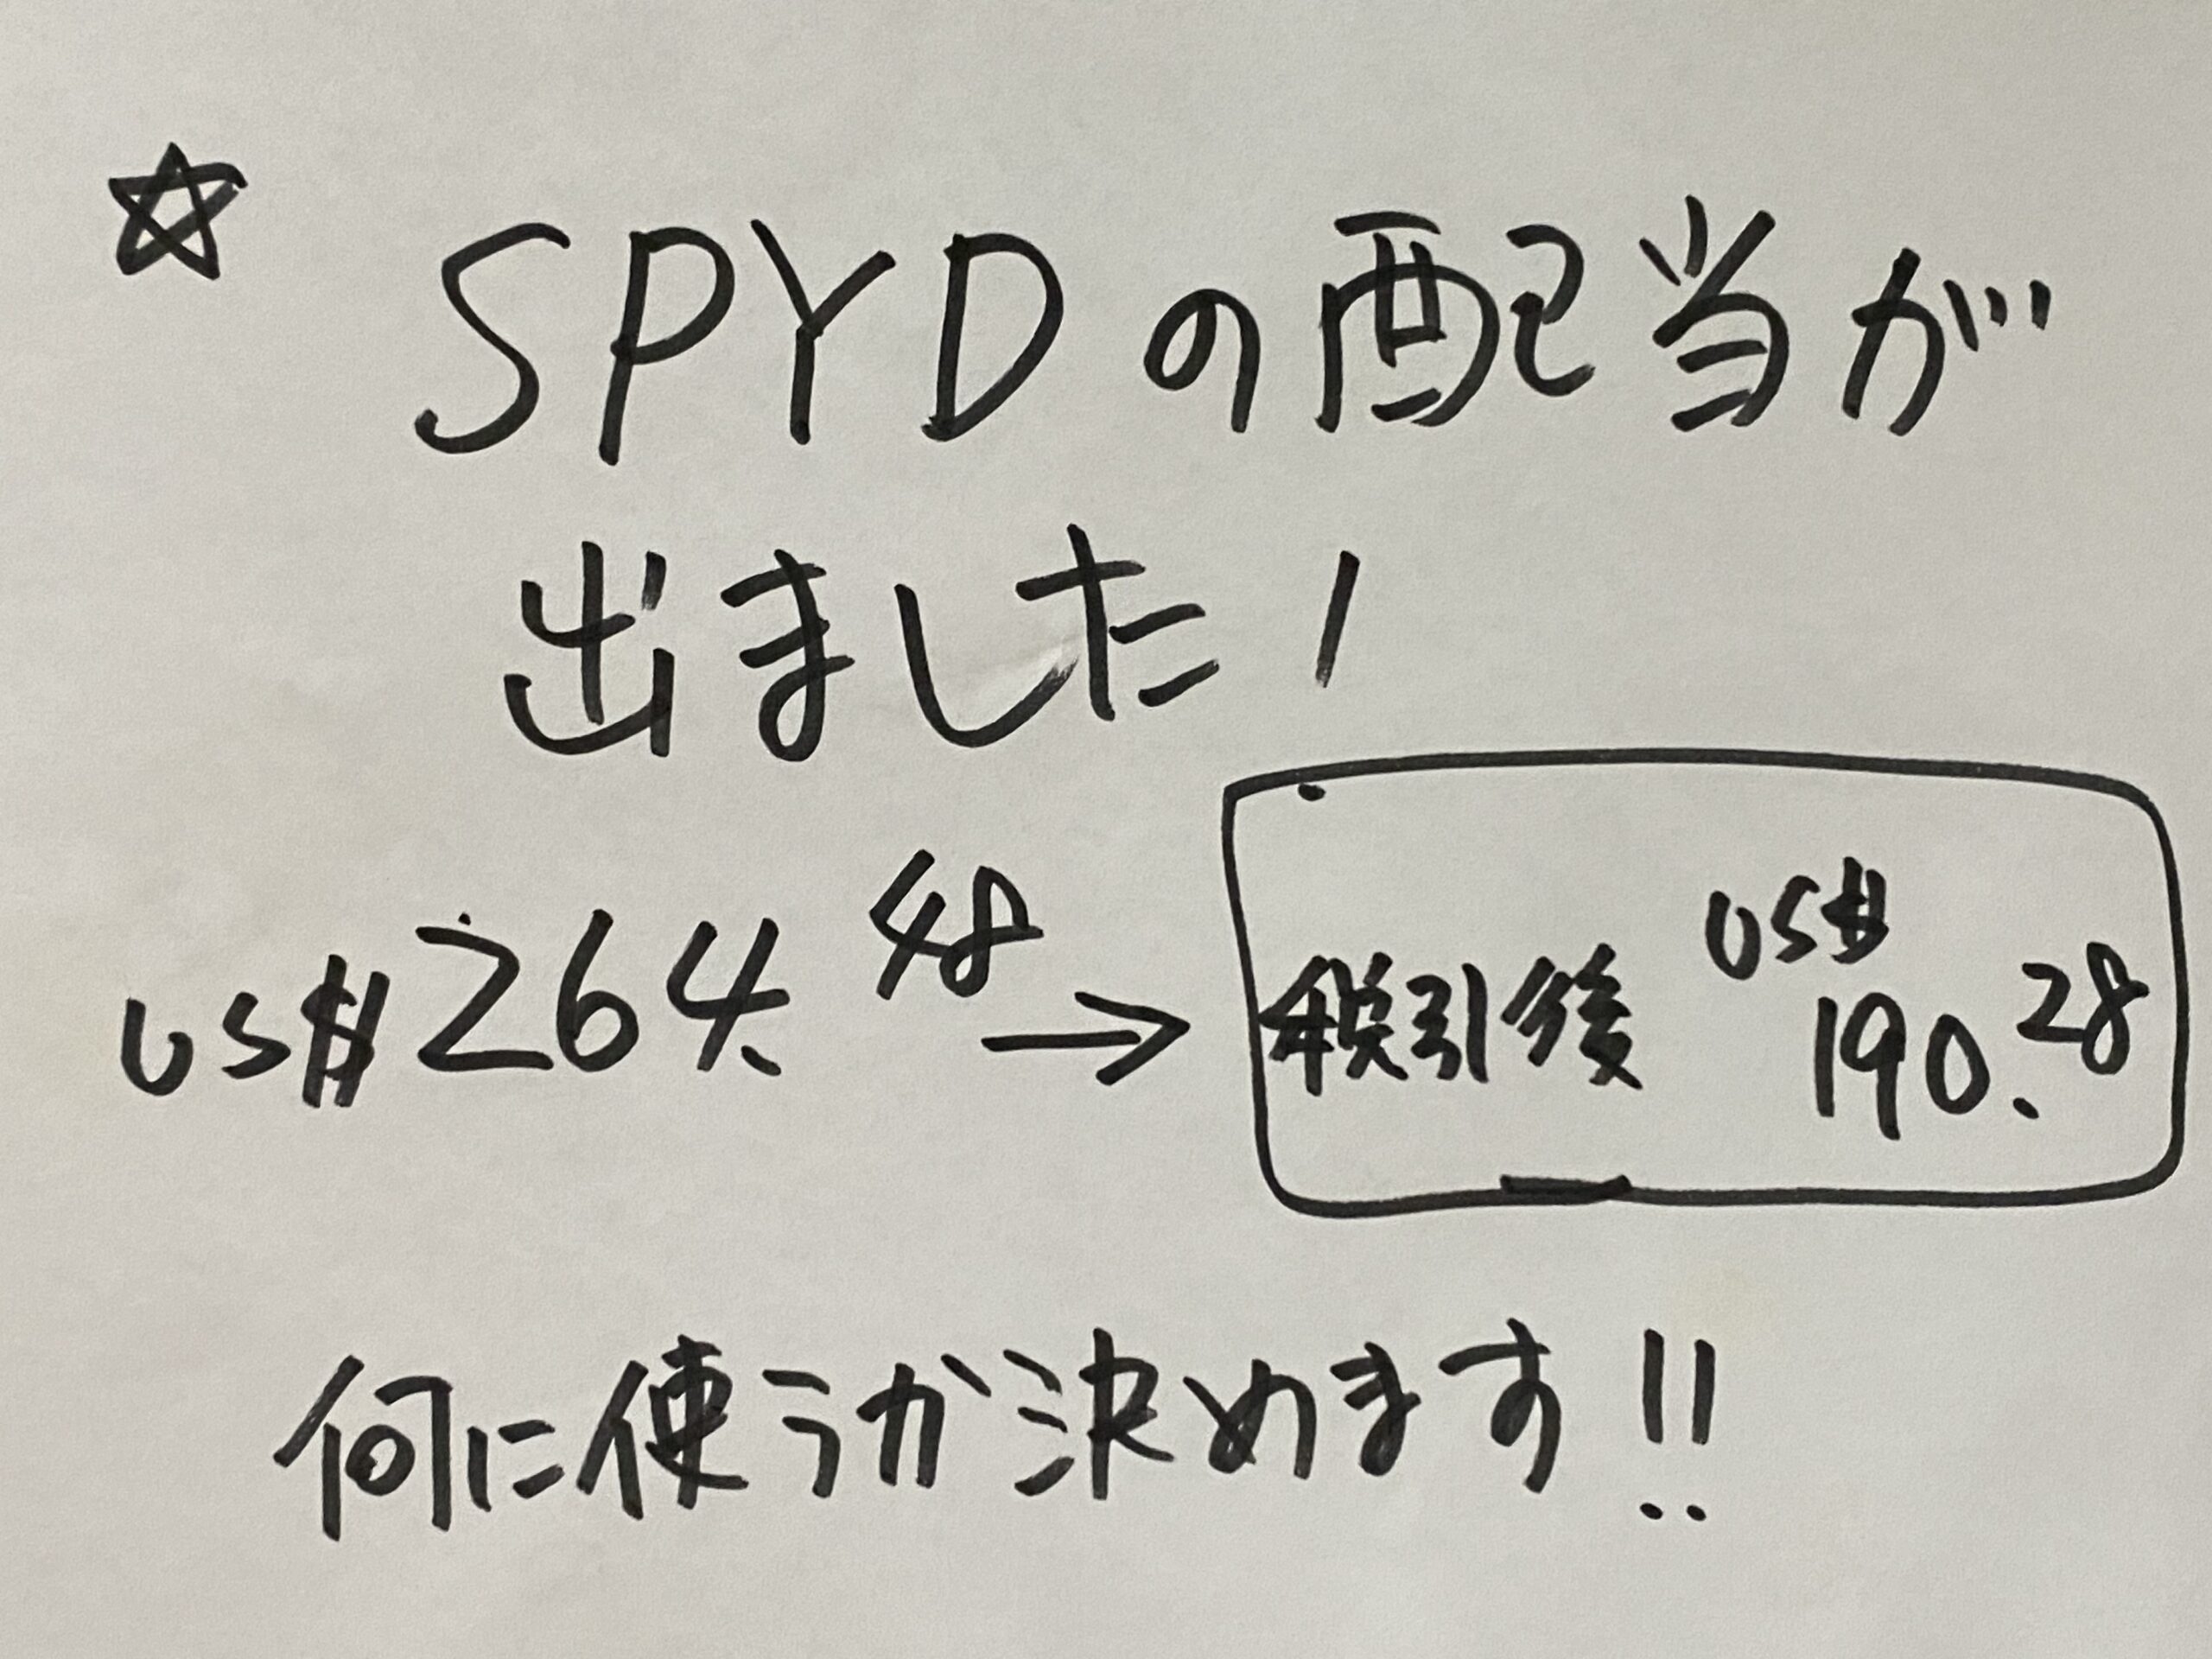 ☆ SPYDの配当が
出ました!
US$264.48 → 税引後 US$190.28
何に使うか決めます!!